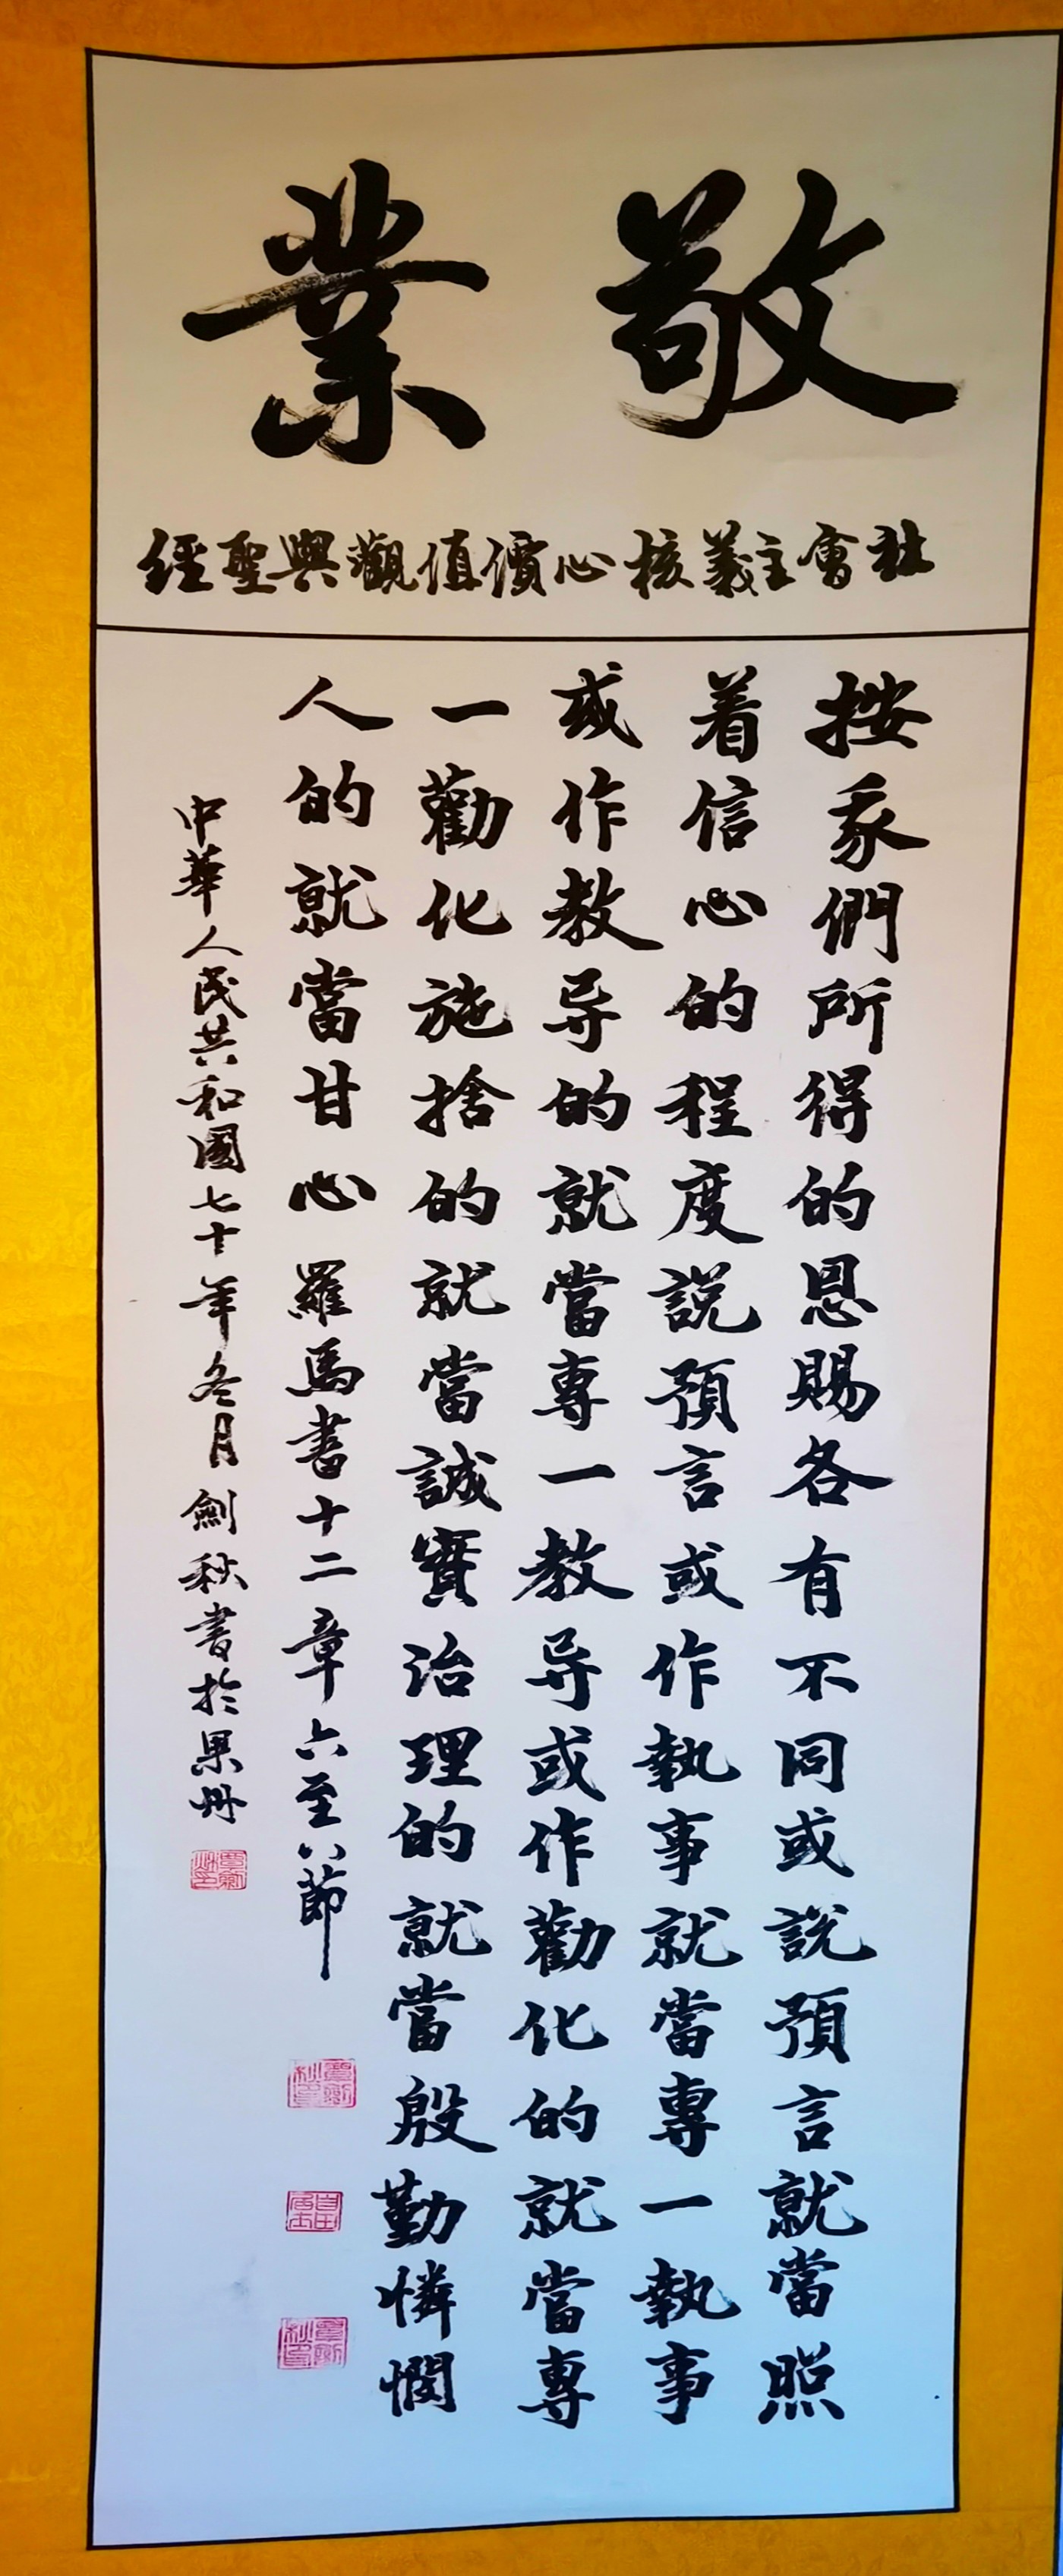 敬業
社會主義核心價值觀與聖經
按我們所得的恩賜各有不同或說預言就當照
着信心的程度說預言或作執事就當專一執事
或作教导的就當專一教导或作勸化的就當專
一勸化施捨的就當誠實治理的就當殷勤憐憫
人的就當甘心 羅馬書十二章六至八節
中華人民共和國七十年冬月 劍秋書於果州